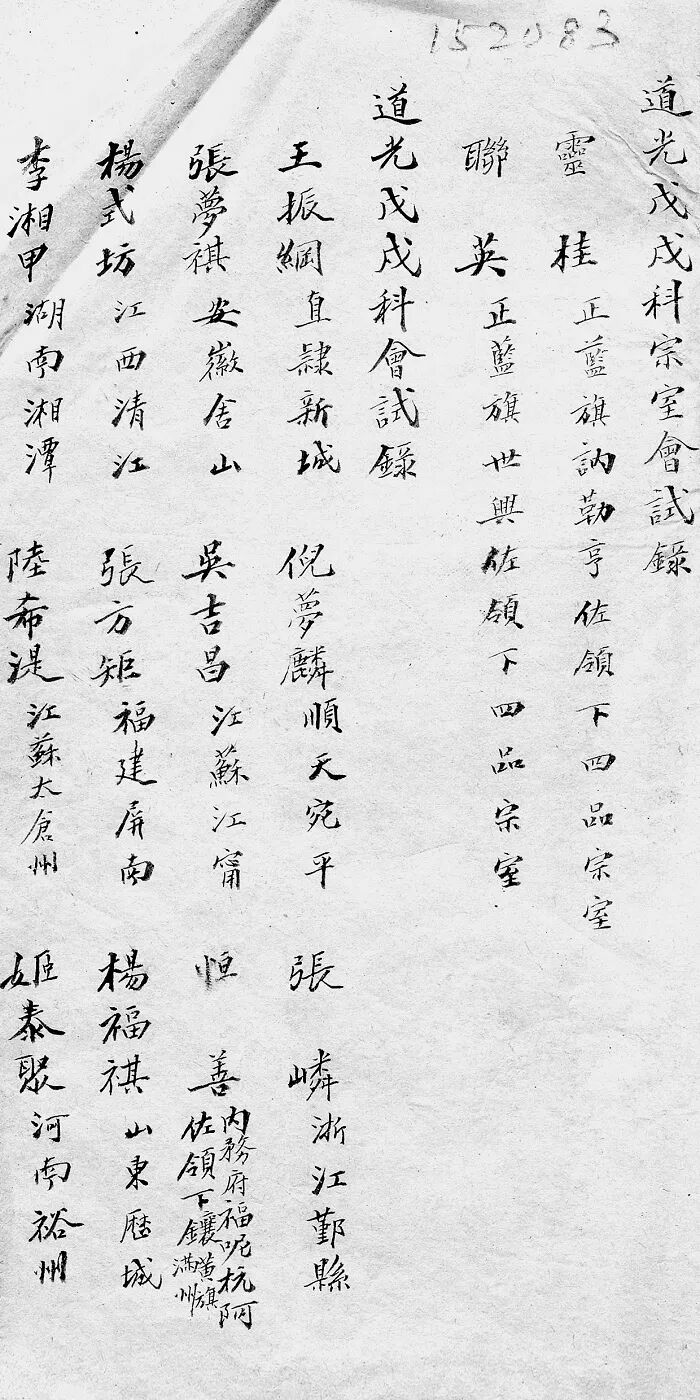 152083
道光戊戌科宗室會試錄
靈桂 正藍旗訥勒亨佐領下四品宗室
聯英 正藍旗世興佐領下四品宗室
道光戊戌科會試錄
王振綱 直隸新城 倪夢麟 順天宛平 張嶙 浙江鄞縣
張夢祺 安徽含山 吳吉昌 江蘇江甯 恒善 內務府福呢杭阿佐領下鑲黃旗滿州
楊式坊 江西清江 張方矩 福建屏南 楊福祺 山東歷城
李湘甲 湖南湘潭 陸希湜 江蘇太倉州 姬泰聚 河南裕州